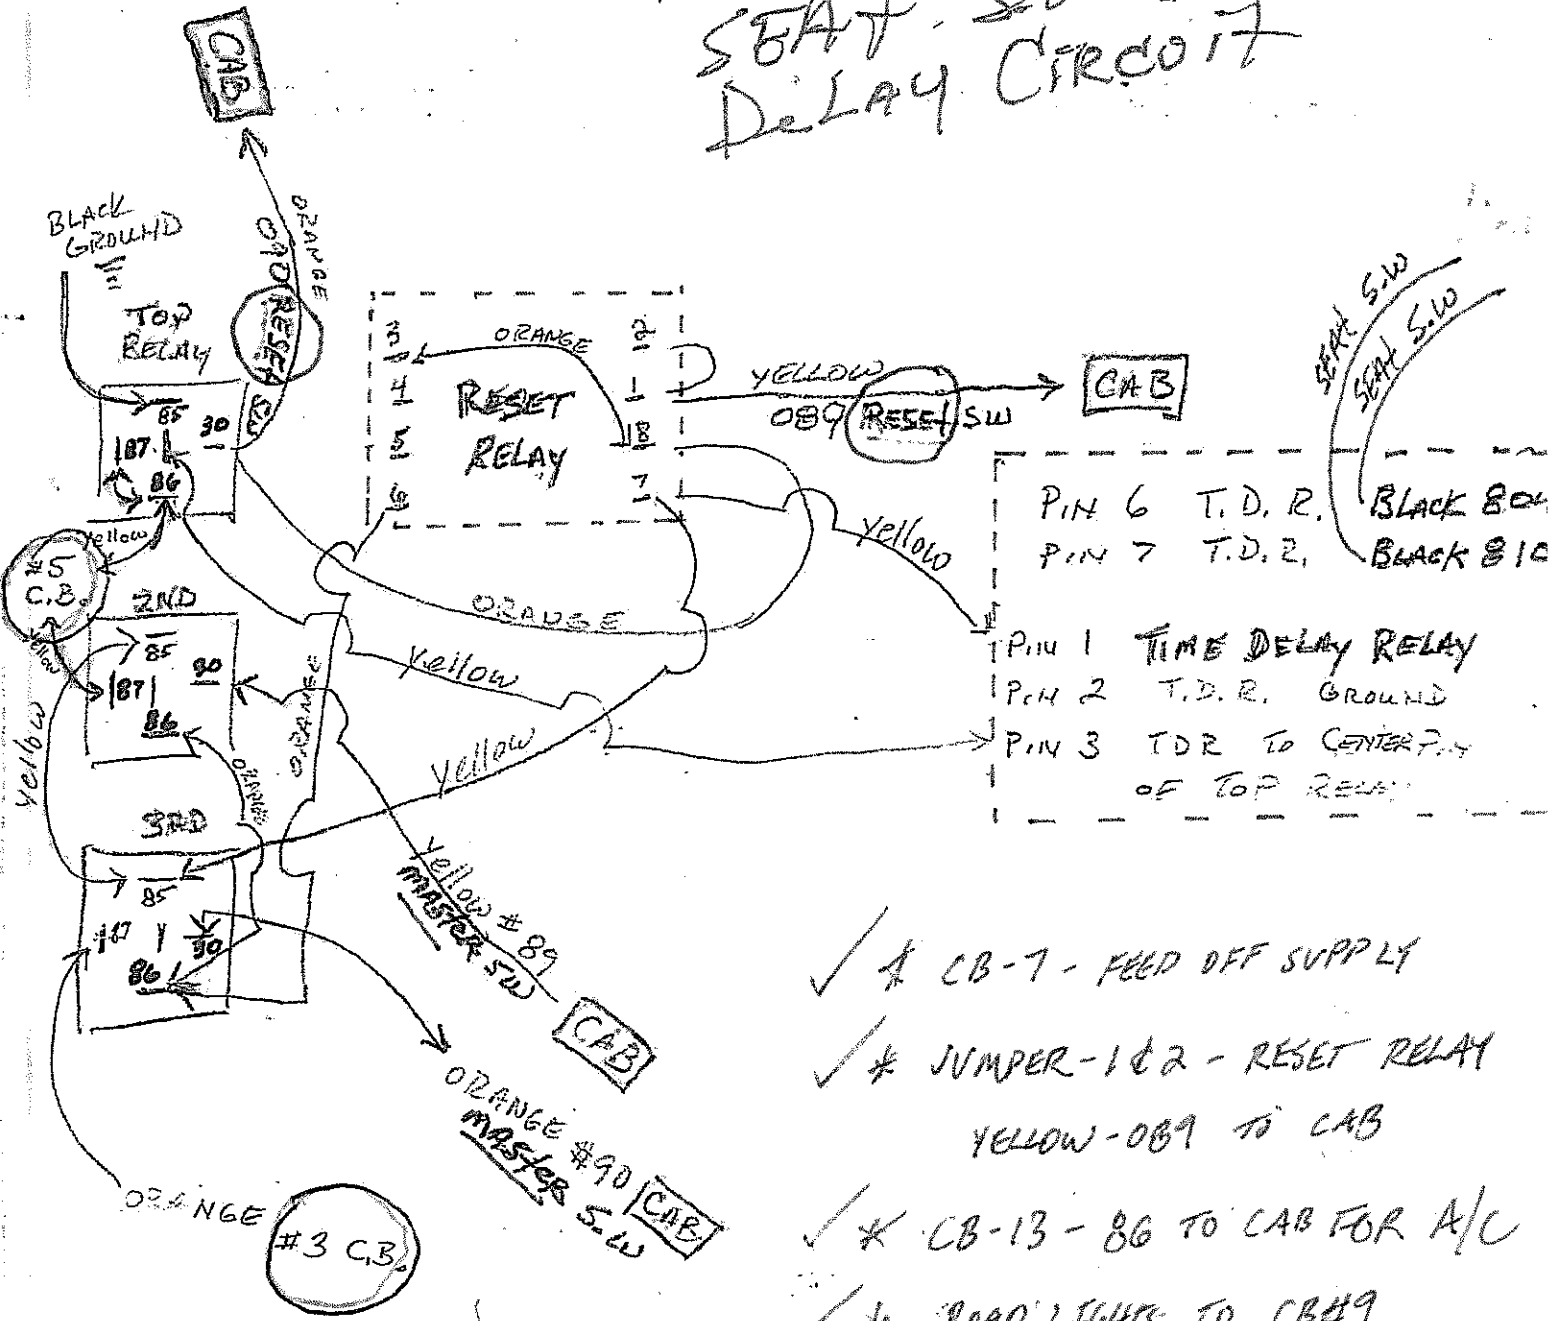 SEAT
DELAY CIRCUIT
CAB
BLACK
GROUND
ORANGE
090 RESET SW
TOP
RELAY
85
30
87
86
3
4
5
6
ORANGE
RESET
RELAY
2
1
8
7
YELLOW
089 RESET SW
CAB
SEAT S.W
SEAT S.W
PIN 6 T.D.R. BLACK
PIN 7 T.D.R. BLACK 810
PIN 1 TIME DELAY RELAY
PIN 2 T.D.R. GROUND
PIN 3 TDR TO CENTER PIN
OF TOP RELAY
yellow
yellow
#5
C.B.
yellow
2ND
85
87
30
86
ORANGE
yellow
ORANGE
yellow
yellow
ORANGE
3RD
85
87
30
86
yellow #89
MASTER SW
CAB
ORANGE #90
MASTER S.W
CAB
ORANGE
#3 C.B.
✓ * CB-7 - FEED OFF SUPPLY
✓ * JUMPER-1&2 - RESET RELAY
YELLOW-089 TO CAB
✓ * CB-13 - 86 TO CAB FOR A/C
✓ * ROAD LIGHTS TO CB#9